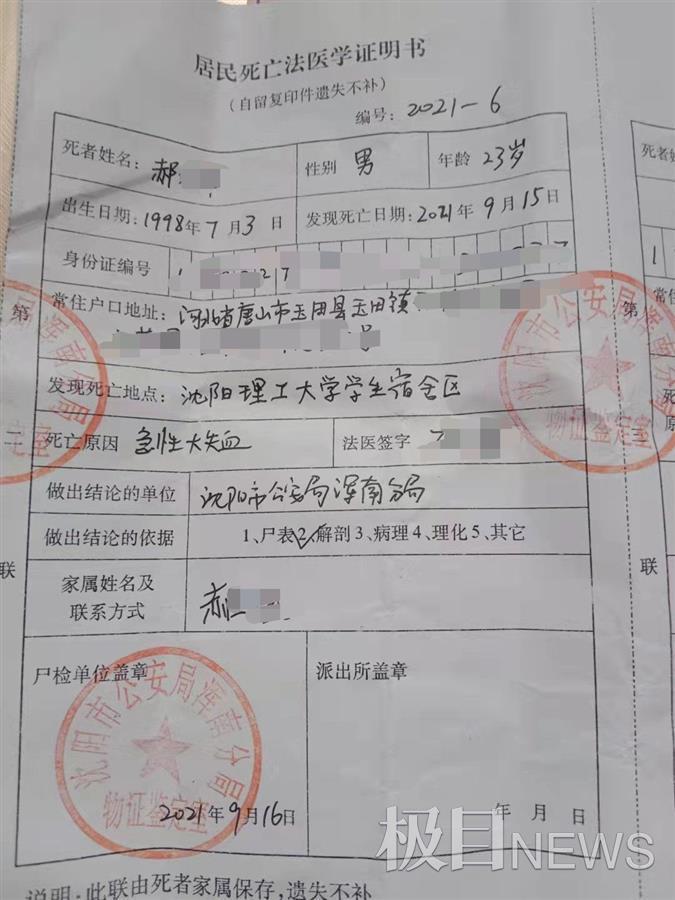 居民死亡法医学证明书
（自留复印件遗失不补）
编号：2021-6
死者姓名：郝 性别 男 年龄 23岁
出生日期：1998年7月3日 发现死亡日期：2021年9月15日
身份证编号 1 2 7 7
常住户口地址：河北省唐山市玉田县玉田镇
号
发现死亡地点：沈阳理工大学学生宿舍区
死亡原因 急性大失血 法医签字
做出结论的单位 沈阳市公安局浑南分局
做出结论的依据 1、尸表2、解剖3、病理4、理化5、其它
家属姓名及
联系方式
郝
尸检单位盖章 派出所盖章
沈阳市公安局浑南分局
物证鉴定室
2021年9月16日 年 月 日
说明：此联由死者家属保存，遗失不补
第
二
联
南分局
定室
沈阳市公安局浑南分局
物证鉴定室
死者姓
出生
身
常住
第
三
联
极目NEWS